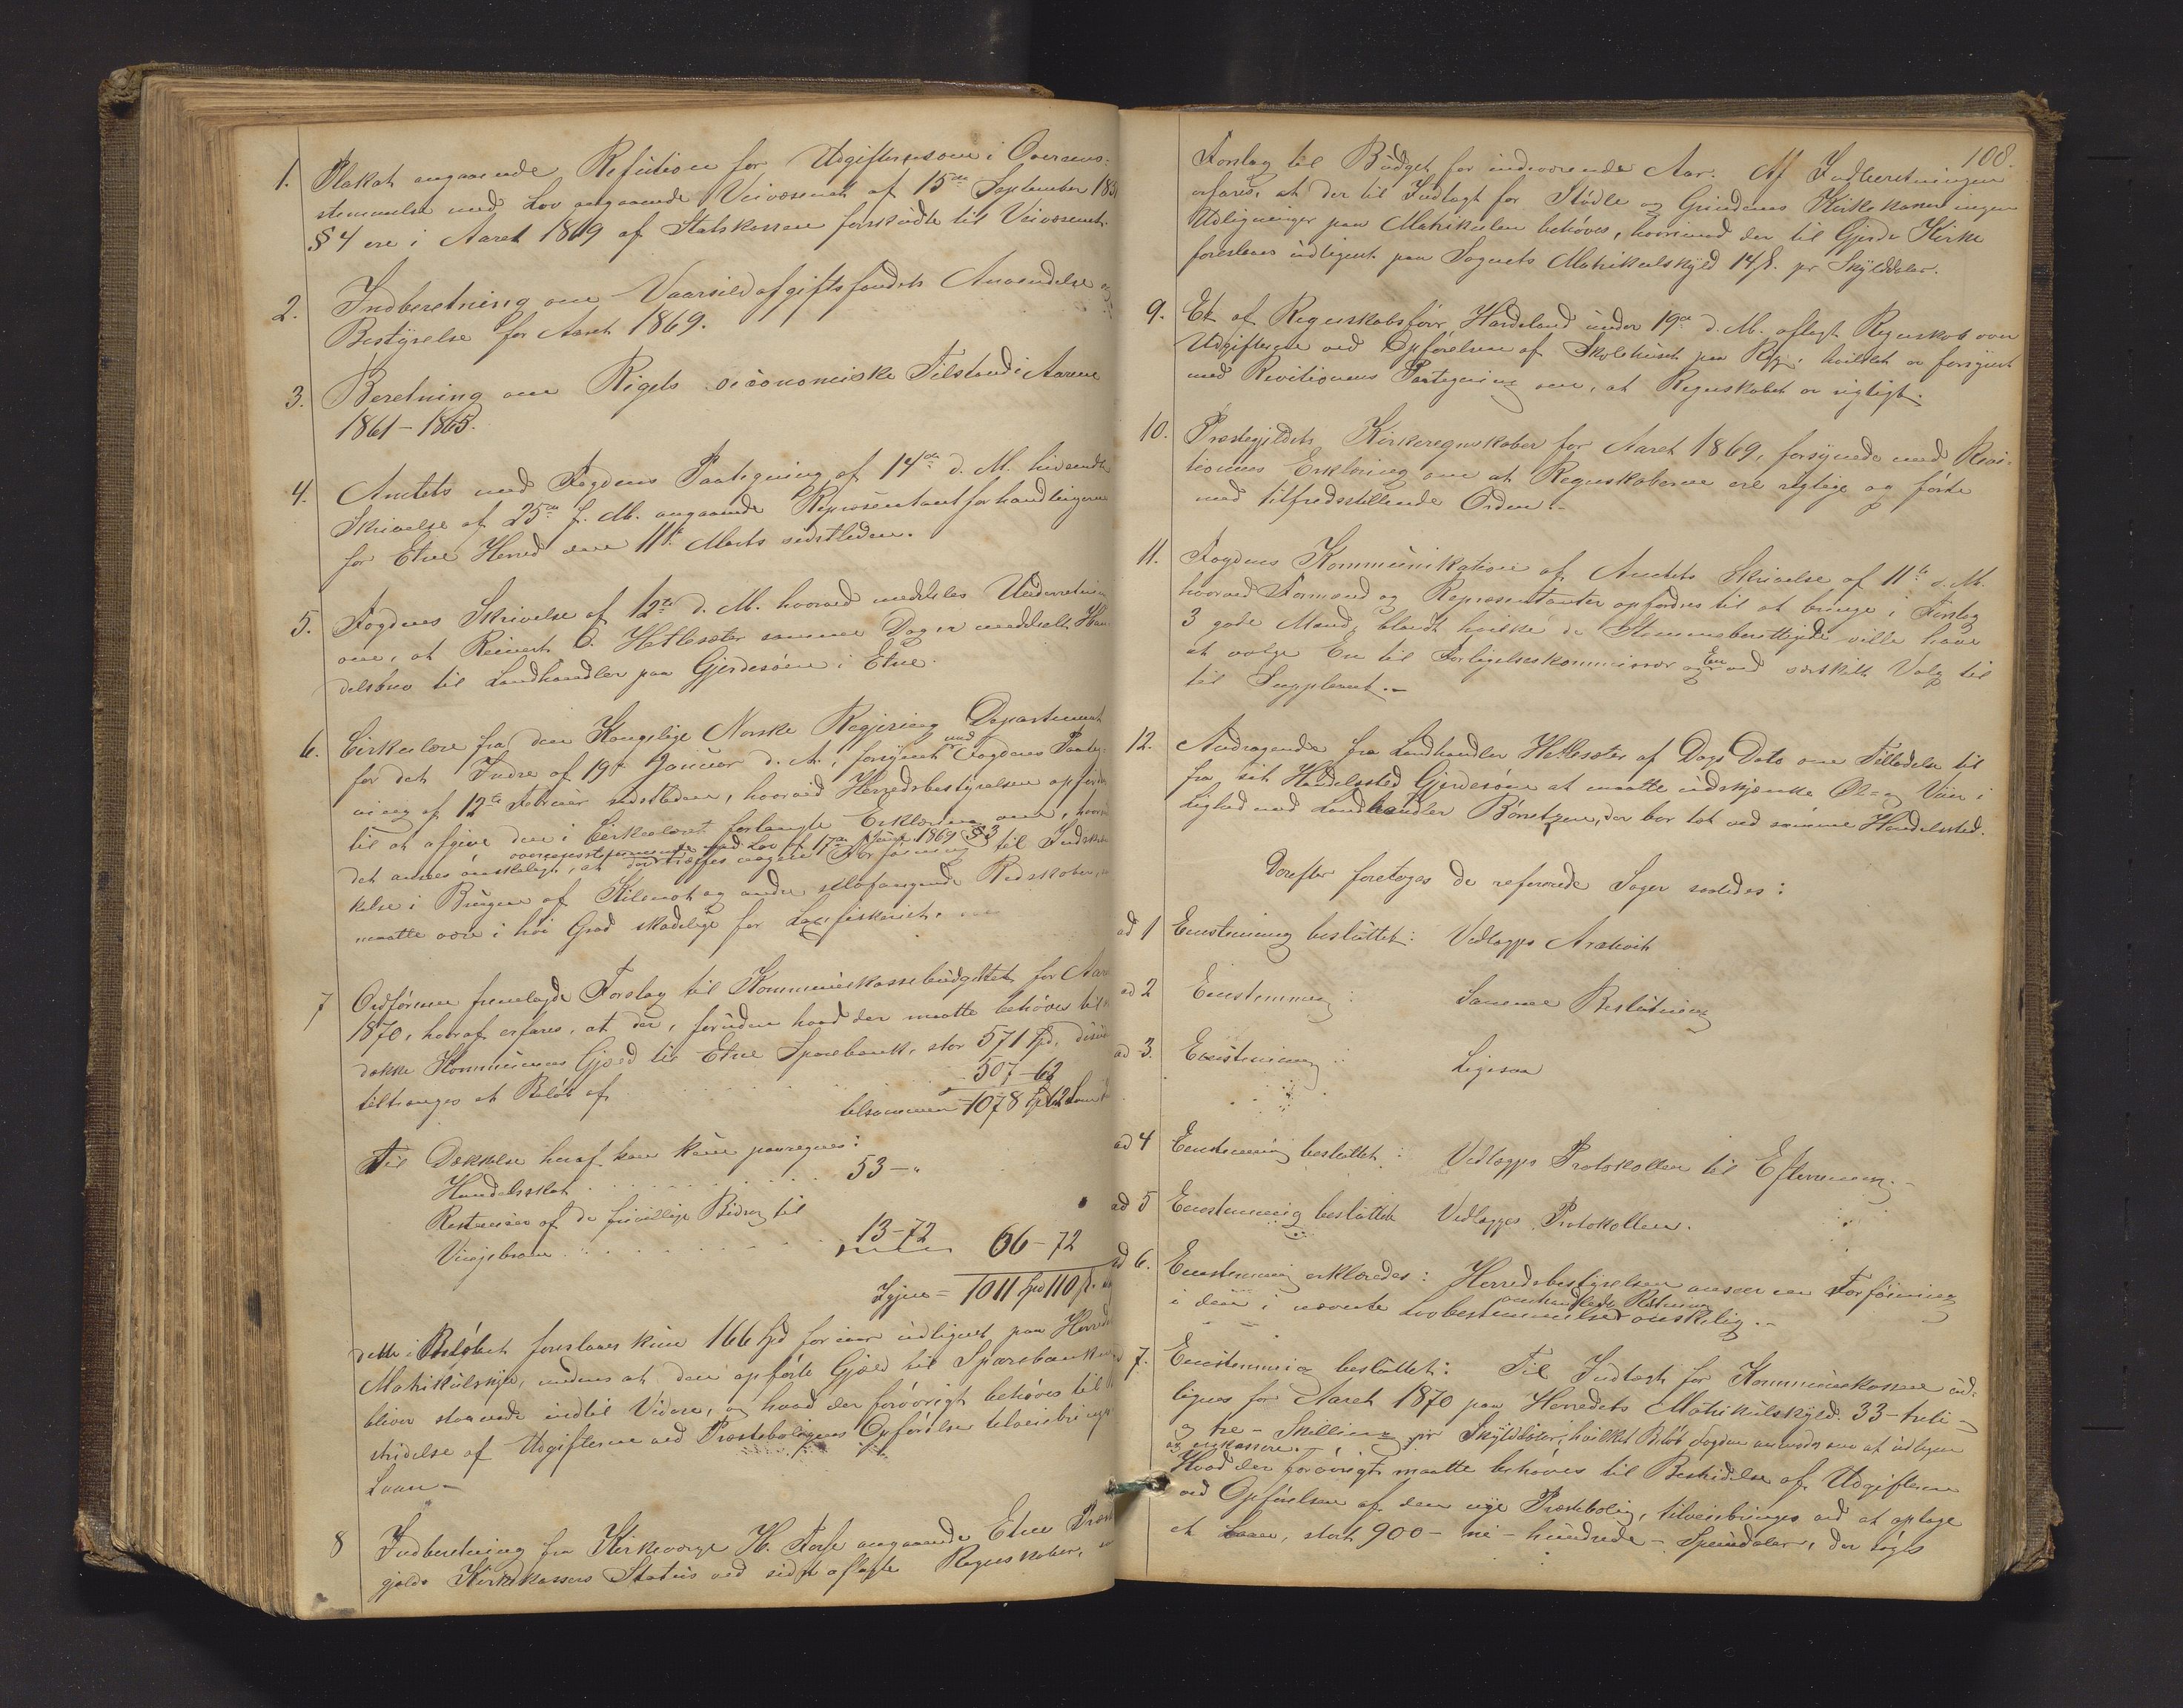 1. Plakat angaaende Refusion for Udgifter som i Overens-
stemmelse med Lov angaaende Veivæsenet af 15de September 185
§ 4 ere i Aaret 1869 af Statskassen forskudte til Veivæsenet.
2. Indberetning om Vaarsildafgiftsfondets Anvendelse og
Bestyrelse for Aaret 1869.
3. Beretning om Rigets oeconomiske Tilstand i Aarene
1861 - 1865.
4. Amtets med Fogdens Paategning af 14de d. M. hidsendte
Skrivelse af 25de f. M. angaaende Repræsentantforhandlingerne
for Etne Herred den 11te Marts sidstleden.
5. Fogdens Skrivelse af 12te d. M. hvorved meddeles Underretning
om, at Reinert O. Hetlesæter samme Dag er meddelt Han-
delsbrev til Landhandler paa Gjerdesøen i Etne.
6. Cirkulære fra den Kongelige Norske Regjering Departement
for det Indre af 19de Januar d. A., forsynet med Fogdens Paateg-
ning af 12te Februar sidstleden, hvorved Herredsbestyrelsen opfordres
til at afgive den i Cirkulæret forlangte Erklæring om, hvorvidt
overensstemmende med Lov af 17de Juni 1869 § 3
det ansees ønskeligt, at der træffes nogen Forføining til Indskræn-
kelse i Brugen af Kilenot og andre selvfangende Redskaber, som
maatte være i høi Grad skadelige for Laxefiskeriet.
7 Ordføreren fremlagde Forslag til Kommunekassebudgettet for Aaret
1870, hvoraf erfares, at der, foruden hvad der maatte behøves til at
dække Kommunens Gjæld til Etne Sparebank, stor 571 Spd,
tiltrænges et Beløb af . . . . . 507 - 62
tilsammen 1078 Spd 62
Til Dækkelse heraf kan kun paaregnes:
Handelsskat . . . . . . . . . 53 - "
Restancer af de frivillige Bidrag til
Vinjebroen . . . . . . . . . 13 - 72 66 - 72
Igjen = 1011 Spd 110 ß.
dette Beløbet foreslaaes kun 166 Spd for iaar udlignet paa Herredets
Matrikulskyld, medens at den opførte Gjæld til Sparebanken
bliver staaende indtil Videre, og hvad der forøvrigt behøves til Be-
stridelse af Udgifterne ved Præsteboligens Opførelse tilveiebringes
Laan -
8 Indberetning fra Kirkeværge H. angaaende Etne Præste-
gjelds Kirkekassers Status ved sidst aflagte Regnskaber,
108.
Forslag til Budget for indeværende Aar. Af Indberetningen
erfares, at der til Indtægt for Stødle og Grindems Kirkekasser ingen
Udligninger paa Matrikulen behøves, hvorimod der til Gjerde Kirke
foreslaaes udlignet paa Sognets Matrikulskyld 14 ß. pr Skylddaler.
9. Et af Regnskabsfører Hardeland under 19de d. M. aflagt Regnskab over
Udgifterne ved Opførelsen af Skolehuset paa hvilket er forsynet
med Revisionens Paategning om, at Regnskabet er rigtigt.
10. Præstegjeldets Kirkeregnskaber for Aaret 1869, forsynede med Revi-
sionens Erklæring om at Regnskaberne ere rigtige og førte
med tilfredsstillende Orden.
11. Fogdens Kommunikation af Amtets Skrivelse af 11te d. M.
hvorved Formænd og Repræsentanter opfordres til at bringe i Forslag
3 gode Mænd, blandt hvilke de Stemmeberettigede ville have
at vælge En til Forligelseskommissær og En ved særskilt Valg til
til Suppleant. -
12. Andragende fra Landhandler Hetlesæter af Dags Dato om Tilladelse til
fra sit Handelssted Gjerdesøen at maatte udskjænke Øl- og Viin i
Lighed med Landhandler Børretzen, der bor tæt ved samme Handelssted.
Derefter foretoges de refererede Sager saaledes:
ad 1 Eenstemmig besluttet: Vedlægges Arckivet
ad 2 Eenstemmig : Samme Beslutning
ad 3. Eenstemmig : Ligesaa
ad 4 Eenstemmig besluttet : Vedlægges Protokollen til Efterretning. -
ad 5 Eenstemmig besluttet Vedlægges Protokollen.
ad 6. Eenstemmig erklæredes: Herredsbestyrelsen anseer en Forføining
omhandlede Retning
i den i nævnte Lovbestemmelse ønskelig. -
ad 7. Eenstemmig besluttet: Til Indtægt for Kommunekassen ud-
lignes for Aaret 1870 paa Herredets Matrikulskyld 33 - treti -
og tre - Skilling pr Skylddaler, hvilket Beløb Fogden anmodes om at udligne
og inkassere.
Hvad der forøvrigt maatte behøves til Bestridelse af Udgifterne
ved Opførelsen af den nye Præstebolig, tilveiebringes ved at optage
et Laan, stort 900 - ni - hundrede - Speciedaler, der søges